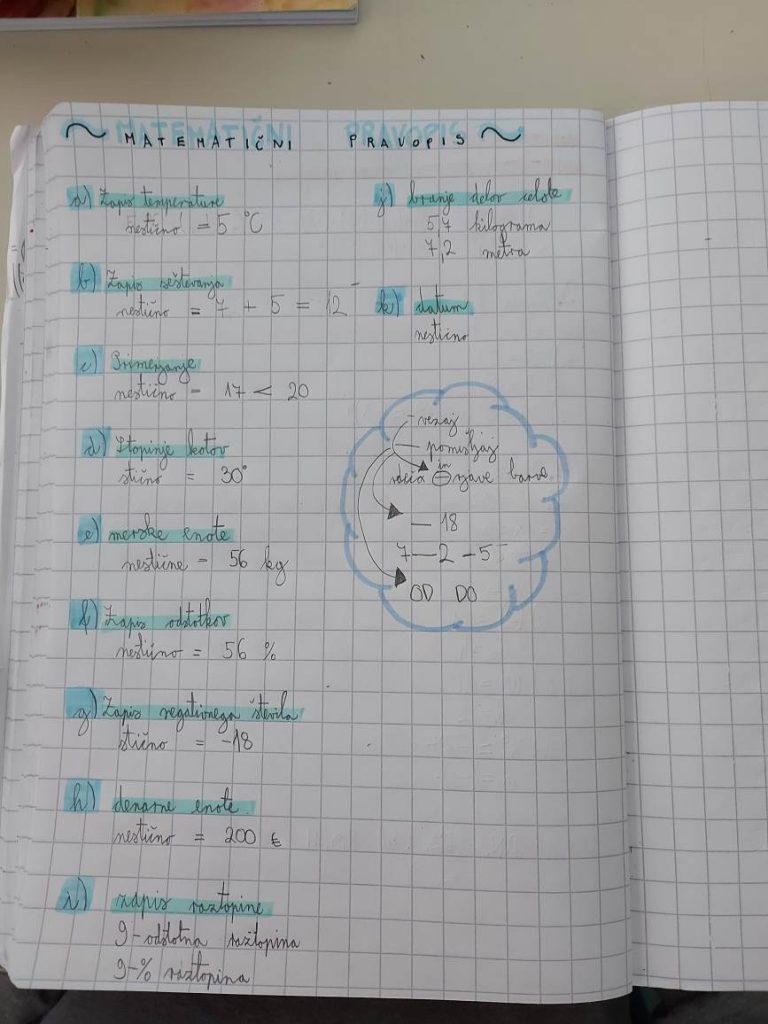 ~ MATEMATIČNI PRAVOPIS ~
a) Zapis temperature
nestično = 5 °C
b) Zapis seštevanja
nestično = 7 + 5 = 12
c) Primerjanje
nestično - 17 < 20
d) Stopinje kotov
stično = 30°
e) merske enote
nestične - 56 kg
f) Zapis odstotkov
nestično = 56 %
g) Zapis negativnega števila
stično = -18
h) denarne enote
nestično = 200 €
i) zapis raztopine
9-odstotna raztopina
9-% raztopina
j) branje delov celote
5,7 kilograma
7,2 metra
k) datum
nestično
- vezaj
— pomišljaj
in
rdeča rjave barve
— 18
7 — 2 - 5
OD DO